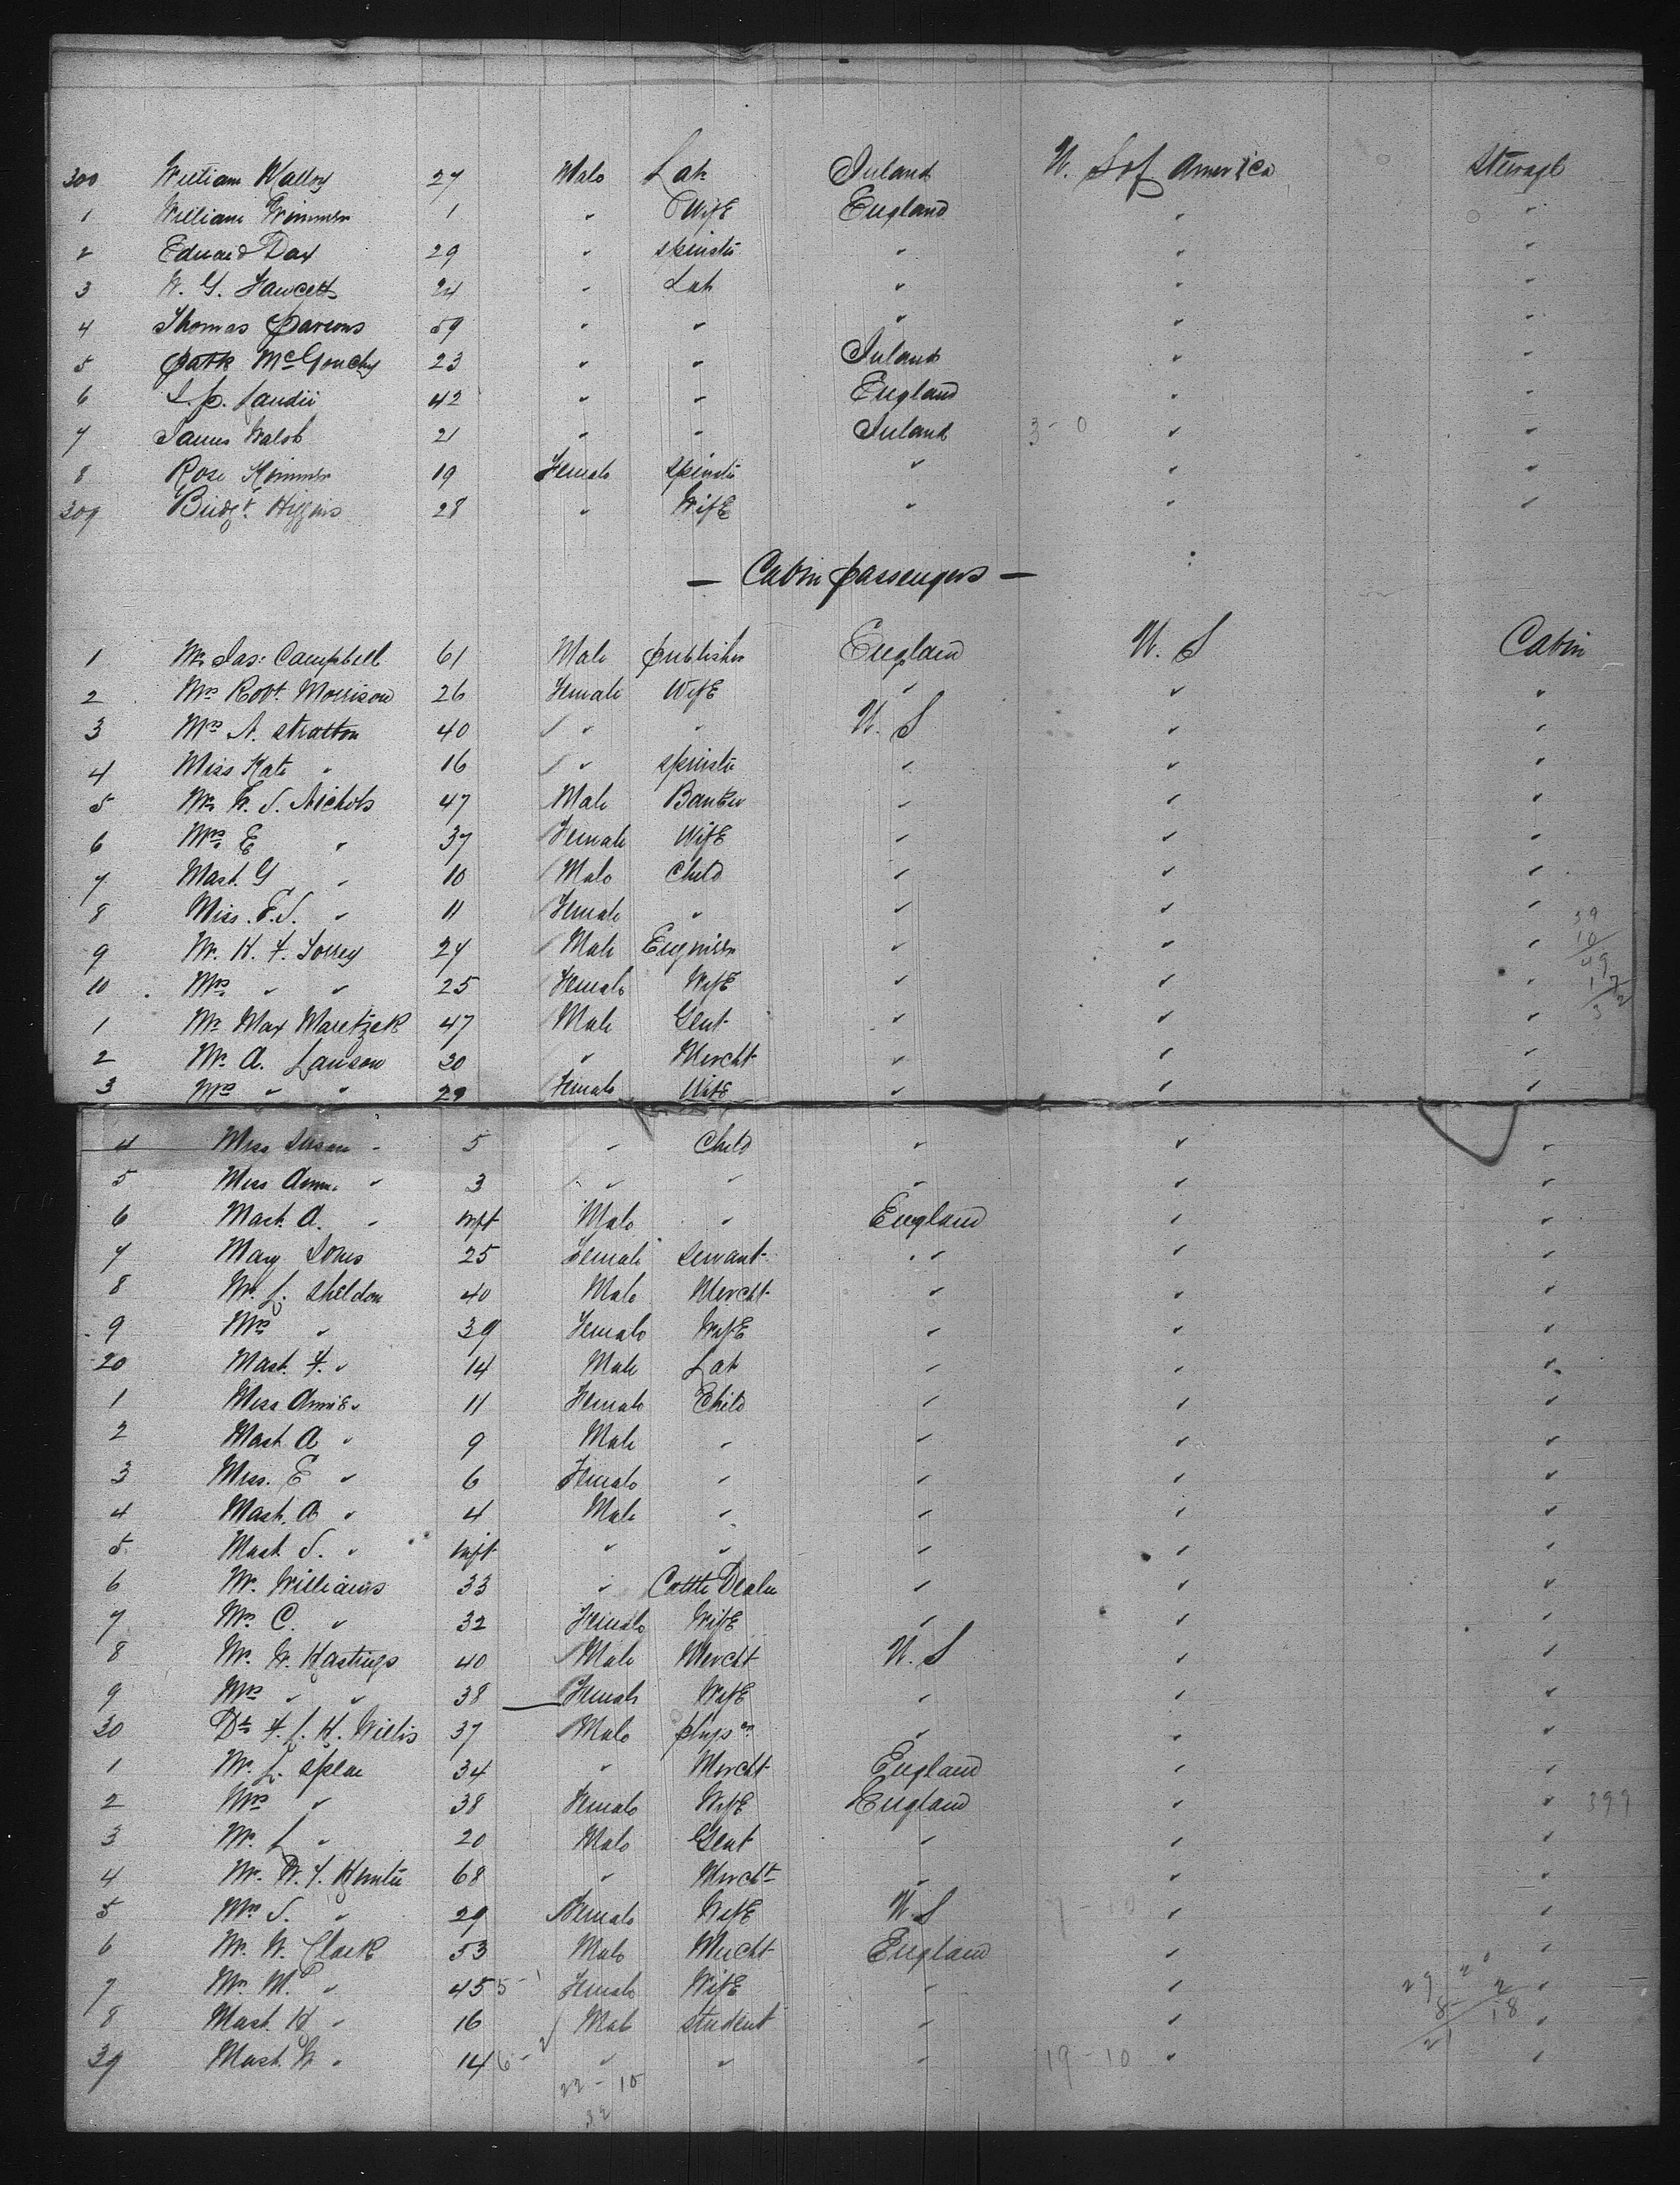 300 William Malloy 27 Male Lab Ireland U. S of America Steerage
1 William Wimmer 1 " Wife England " "
2 Edward Day 29 " spinstr " " "
3 W. G. Fawcett 24 " Lab " " "
4 Thomas Parsons 59 " " " " "
5 Patk McGouchy 23 " " Ireland " "
6 42 " " England " "
7 James Walsh 21 " " Ireland 3-0 " "
8 Rose Kimmer 19 Female Spinstr " " "
309 Bridgt. Higgins 28 " Wife " " "
— Cabin passengers —
1 Mr. Jas: Campbell 61 Male publisher England U. S Cabin
2 Mrs Robt. Morrison 26 Female Wife " " "
3 Mrs A. Stratton 40 " " U. S " "
4 Miss Kate " 16 " spinstr " " "
5 Mr. W. S. Nichols 47 Male Banker " " "
6 Mrs E " 37 Female Wife " " "
7 Mast. G " 10 Male Child " " "
8 Miss. E. S. " 11 Female " " " "
9 Mr. H. F. Torrey 27 Male Engineer " " "
39
10
49
10 Mrs " " 25 Female Wife " " "
1 Mr Max Maretzek 47 Male Gent " " "
2 Mr. A. Lawson 30 " Mercht " " "
3 Mrs " " 29 Female Wife " " "
4 Miss Susan " 5 " Child " " "
5 Miss Ann. " 3 " " " " "
6 Mast. A. " inft Male " England " "
7 Mary Jones 25 Female Servant " " "
8 Mr. J. Sheldon 40 Male Mercht " " "
9 Mrs " 39 Female Wife " " "
20 Mast. F. " 14 Male Lab " " "
1 Miss Annie " 11 Female Child " " "
2 Mast A " 9 Male " " " "
3 Miss. E " 6 Female " " " "
4 Mast. A " 4 Male " " " "
5 Mast S. " inft " " " " "
6 Mr. Williams 33 " Cattle Dealer " " "
7 Mrs C. " 32 Female Wife " " "
8 Mr. W. Hastings 40 Male Mercht U. S " "
9 Mrs " " 38 Female Wife " " "
30 Dr. F. L. H. Willis 37 Male phys n " " "
1 Mr. J. Spear 34 " Mercht England " "
2 Mrs " 38 Female Wife England " " 399
3 Mr. J " 20 Male Gent " " "
4 Mr. W. F. Hunter 68 " Mercht " " "
5 Mrs S. " 29 Female Wife U. S 7-10 " "
6 Mr. W. Clark 53 Male Mercht England " "
7 Mrs M. " 45 5-1 Female Wife " " "
8 Mast. H " 16 Male student " " "
39 Mast. W " 14 6-2 " " " 19-10 " "
22-10
32